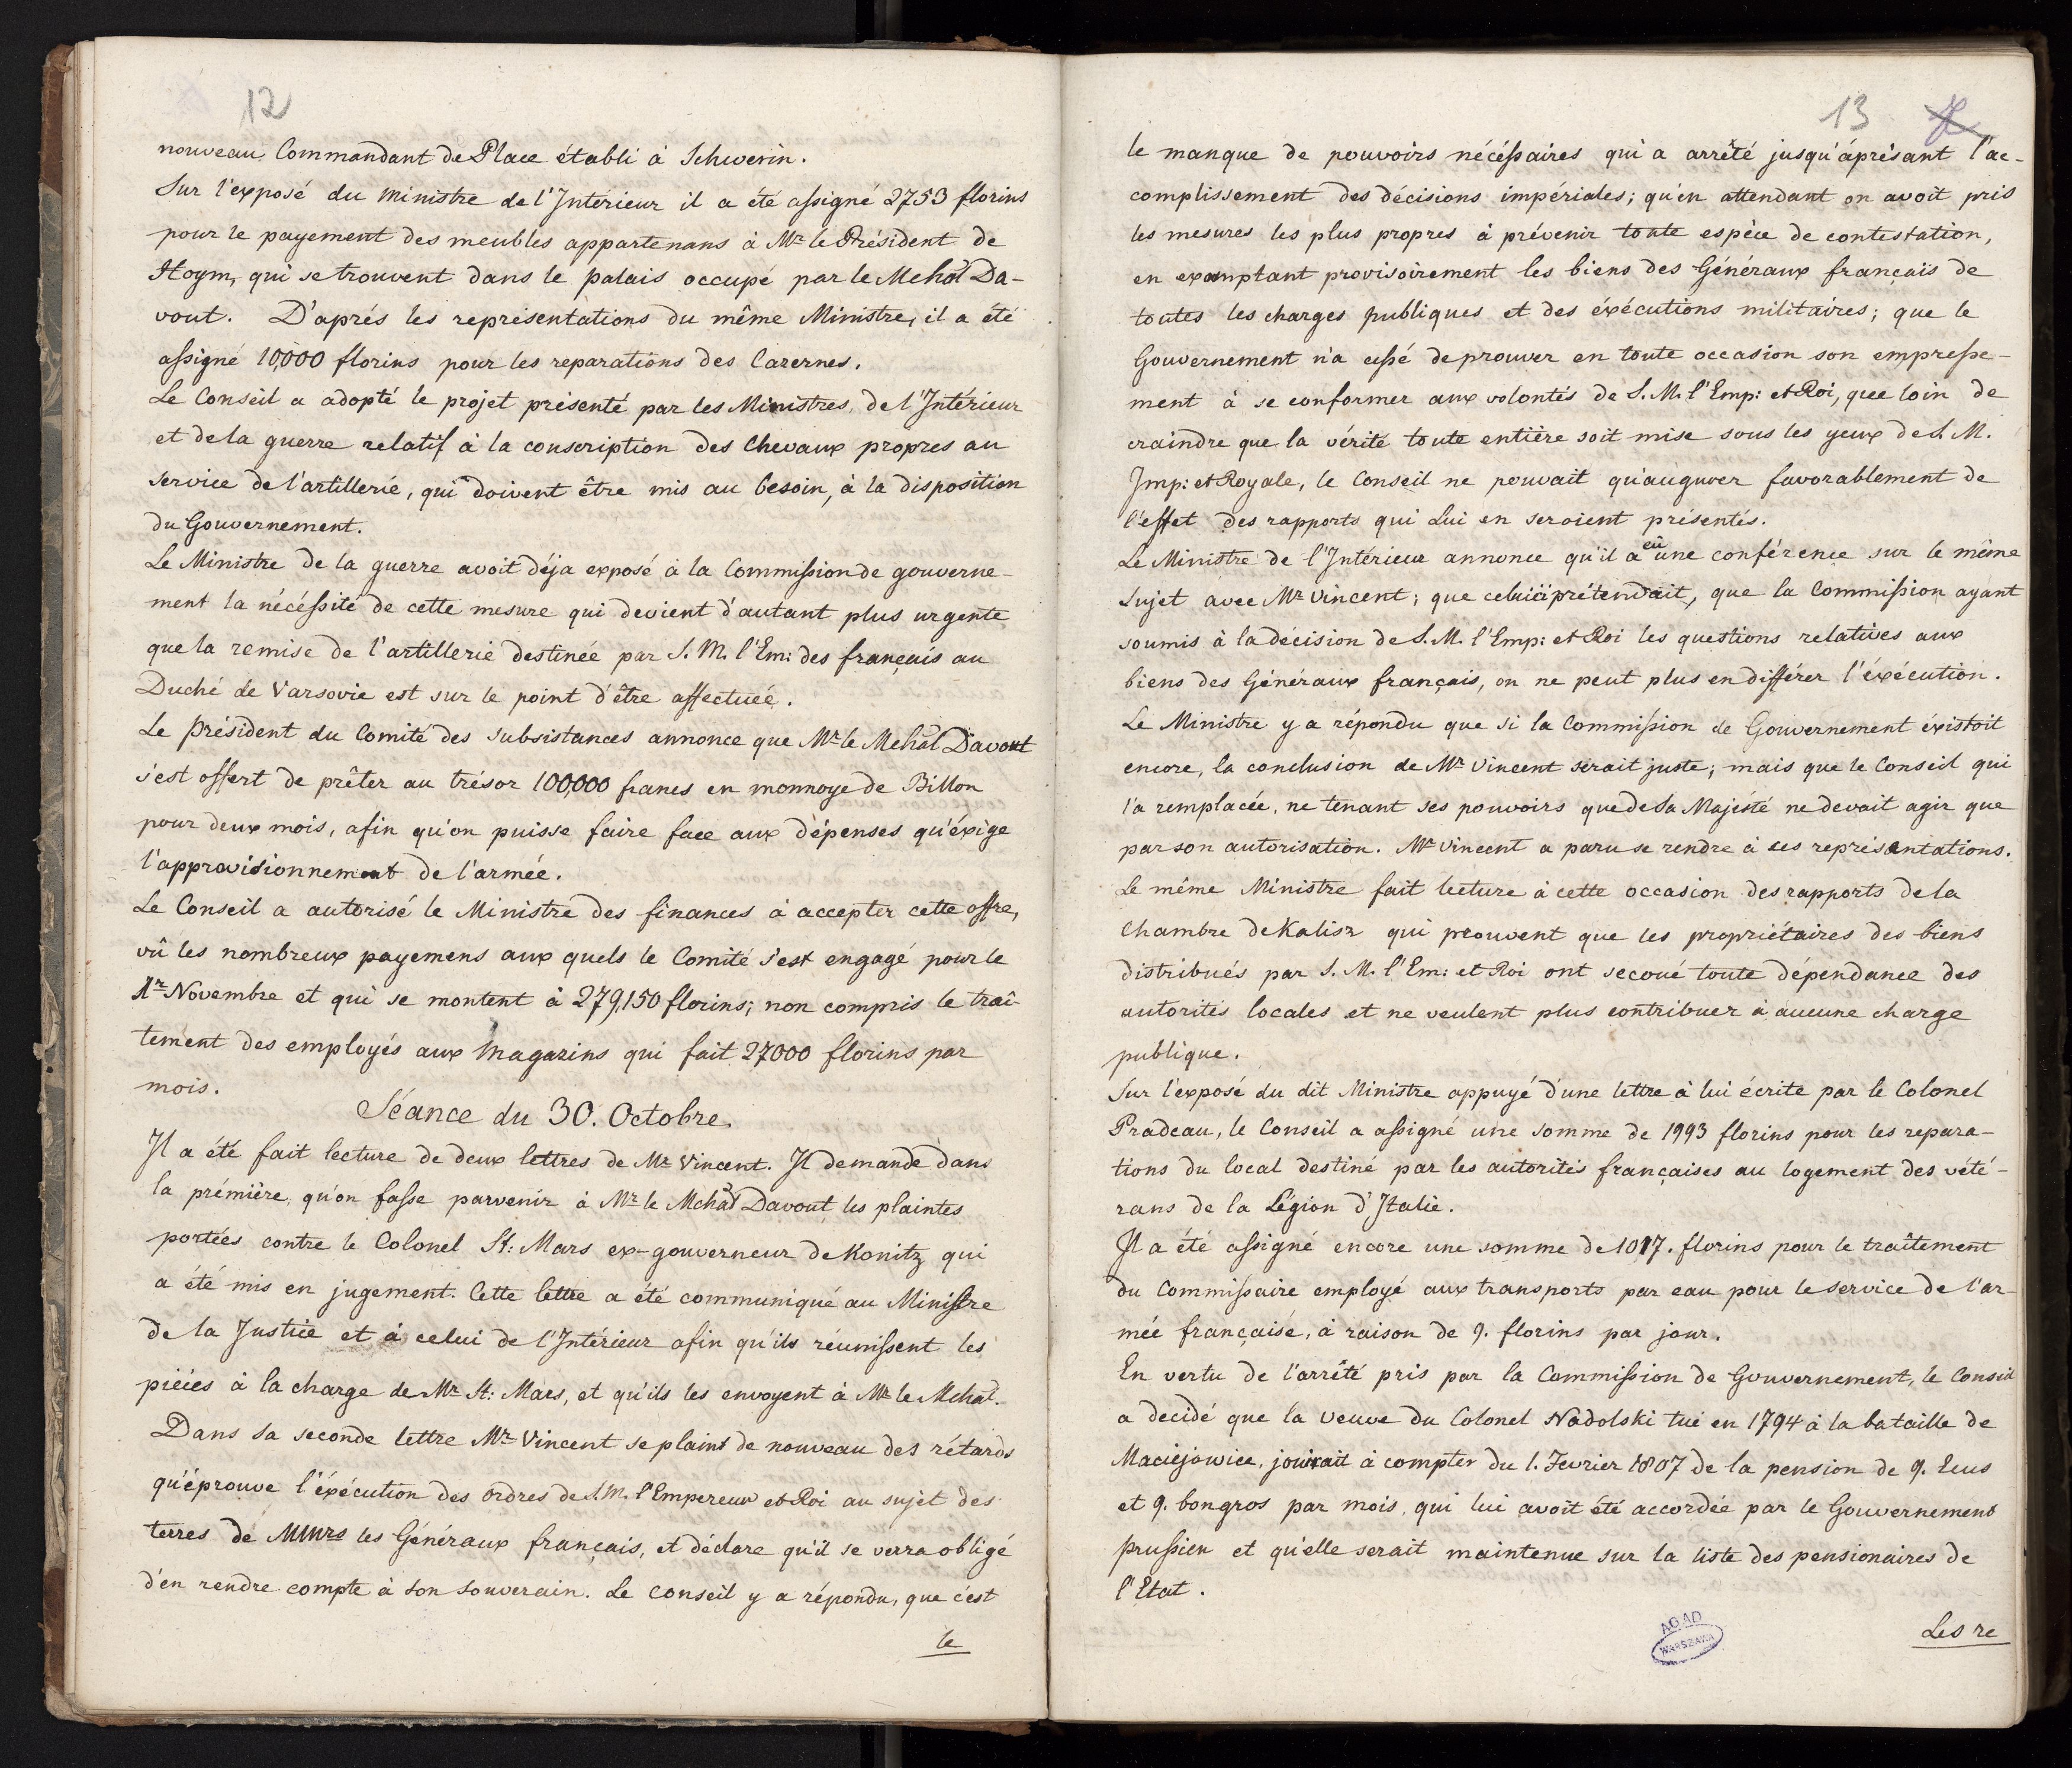 12
nouveau Commandant de Place établi à Schwerin.
Sur l'exposé du Ministre de l'Intérieur il a été assigné 2753 florins
pour le payement des meubles appartenans à Mr le Président de
Hoym, qui se trouvent dans le palais occupé par le Mchal Da-
vout. D'aprés les représentations du même Ministre, il a été
assigné 10,000 florins pour les reparations des Cazernes.
Le Conseil a adopté le projet présenté par les Ministres, de l'Intérieur
et de la guerre relatif à la conscription des Chevaux propres au
service de l'artillerie, qui doivent être mis au besoin, à la disposition
du Gouvernement.
Le Ministre de la guerre avoit déja exposé à la Commission de gouverne-
ment la nécéssité de cette mesure qui devient d'autant plus urgente
que la remise de l'artillerie destinée par S. M. l'Em: des français au
Duché de Varsovie est sur le point d'être affectuée.
Le Président du Comité des subsistances annonce que Mr le Mchal Davout
s'est offert de prêter au trésor 100,000 francs en monnoye de Billon
pour deux mois, afin qu'on puisse faire face aux dépenses qu'éxige
l'approvisionnement de l'armée.
Le Conseil a autorisé le Ministre des finances à accepter cette offre,
vû les nombreux payemens aux quels le Comité s'est engagé pour le
1r Novembre et qui se montent à 279,150 florins; non compris le traî-
tement des employés aux Magazins qui fait 27000 florins par
mois.
Séance du 30. Octobre.
Il a été fait lecture de deux lettres de Mr Vincent. Il demande dans
la prémière, qu'on fasse parvenir à Mr le Mchal Davout les plaintes
portées contre le Colonel St: Mars ex-gouverneur de Konitz qui
a été mis en jugement. Cette lettre a été communiqué au Ministre
de la Justice et à celui de l'Intérieur afin qu'ils réunissent les
piéces à la charge de Mr St: Mars, et qu'ils les envoyent à Mr le Mchal.
Dans sa seconde lettre Mr Vincent se plaint de nouveau des rétards
qu'éprouve l'éxécution des ordres de S. M. l'Empereur et Roi au sujet des
terres de MMrs les Généraux français, et déclare qu'il se verra obligé
d'en rendre compte à son souverain. Le Conseil y a répondu, que c'est
le
13
le manque de pouvoirs nécéssaires qui a arrêté jusqu'áprésant l'ac-
complissement des décisions impériales; qu'en attendant on avoit pris
les mesures les plus propres à prévenir toute espèce de contestation,
en examptant provisoirement les biens des Généraux français de
toutes les charges publiques et des éxécutions militaires; que le
Gouvernement n'a cessé de prouver en toute occasion son empresse-
ment à se conformer aux volontés de S. M. l'Emp: et Roi, que loin de
craindre que la vérité toute entière soit mise sous les yeux de S. M.
Imp: et Royale, le Conseil ne pouvait qu'augurer favorablement de
l'effet des rapports qui Lui en seroient présentés.
Le Ministre de l'Intérieur annonce qu'il a eû une conférence sur le même
sujet avec Mr Vincent; que celuici prétendait, que la Commission ayant
soumis à la décision de S. M. l'Emp: et Roi les questions relatives aux
biens des Généraux français, on ne peut plus en différer l'éxécution.
Le Ministre y a répondu que si la Commission de Gouvernement éxistoit
encore, la conclusion de Mr Vincent serait juste; mais que le Conseil qui
l'a remplacée, ne tenant ses pouvoirs que de Sa Majésté ne devait agir que
par son autorisation. Mr Vincent a paru se rendre à ces représentations.
Le même Ministre fait lecture à cette occasion des rapports de la
Chambre de Kalisz qui prouvent que les propriétaires des biens
distribués par S. M. l'Em: et Roi ont secoué toute dépendance des
autorités locales et ne veulent plus contribuer à aucune charge
publique.
Sur l'exposé du dit Ministre appuyé d'une lettre à lui écrite par le Colonel
Pradeau, le Conseil a assigné une somme de 1993 florins pour les repara-
tions du local destiné par les autorités françaises au logement des vété-
rans de la Légion d'Italie.
Il a été assigné encore une somme de 1017. florins pour le traîtement
du Commissaire employé aux transports par eau pour le service de l'ar-
mée française, à raison de 9. florins par jour.
En vertu de l'arrêté pris par la Commission de Gouvernement, le Conseil
a decidé que la veuve du Colonel Nadolski tué en 1794 à la bataille de
Maciéjowice, jouirait à compter du 1. Fevrier 1807 de la pension de 9. Ecus
et 9. bongros par mois, qui lui avoit été accordée par le Gouvernement
prussien et qu'elle serait maintenue sur la liste des pensionaires de
l'Etat.
Les re
AGAD
WARSZAWA